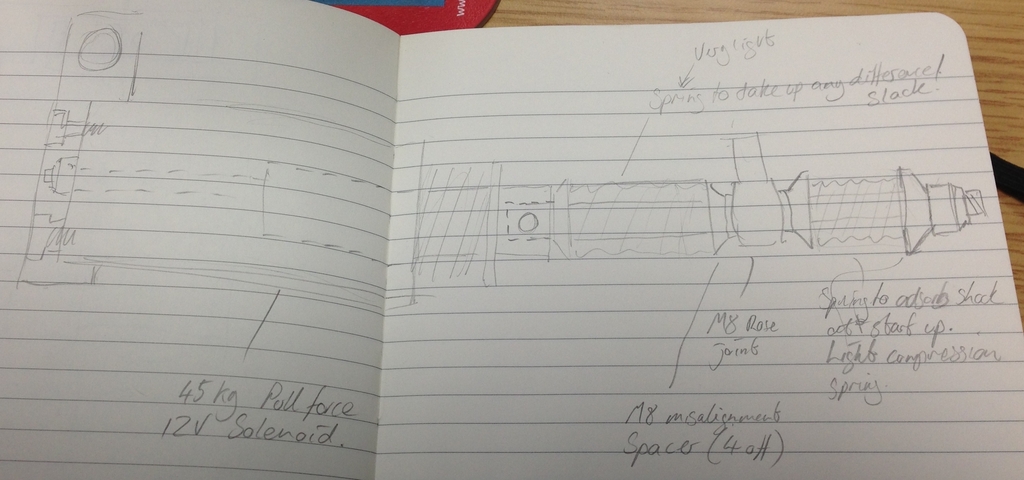 www
Very light
Spring to take up any difference/
Slack.
M8 Rose
joint
Spring to adsorb shock
at start up.
Light compression
spring.
45kg Pull force
12V Solenoid.
M8 misalignment
Spacer (4 off)